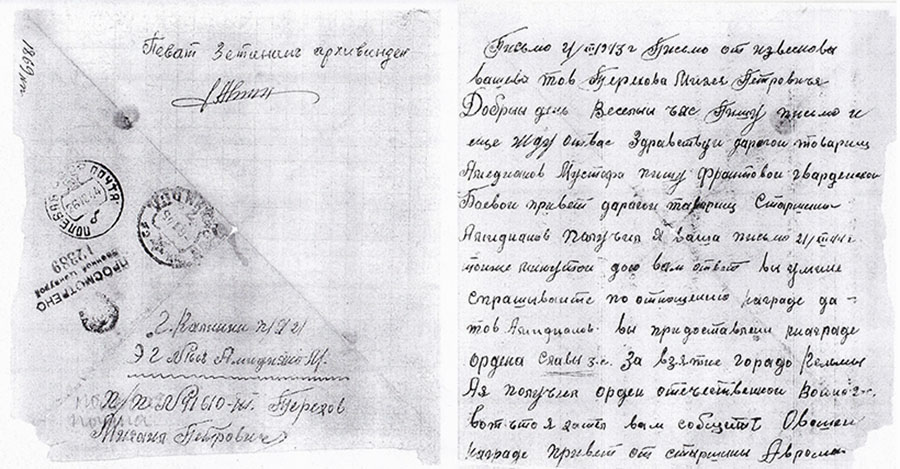 1869 кт.
Певат Зетанант архивинден
ПОЛЕВАЯ ПОЧТА
ПРОСМОТРЕНО
Военной Цензурой
12389
г. Калинин п/я 21
Э Г №
п/п № 1610-кт. Терехов
Михаил Петрович
Письмо 2/III 1943 г Письмо от извеснова
вашева тов Терехова Михаи Петровичь
Добрый день Веселый час Пишу письмо и
еще жду от вас Здравствуй дарогой товарищ
Амидианов Мустафа пишу франтовой гварденской
Боевой привет дарогой таварищ Старшина
Амидианов получил я ваша письмо
тоиже минутой даю вам ответ вы у мине
спрашиваите по отнощению награде да-
тов Амидианов вы придоставлены кнаграде
ордена Славы 3.с. За взятие горадо Кельмы
Ая получил орден отечественной войны 2 с.
вот што я хотя вам сообщить Овашей
награде привет от старшины Аврома